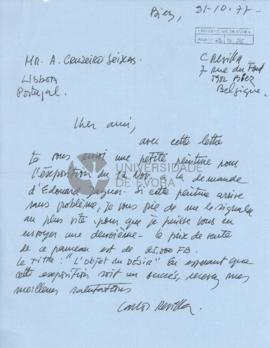 31-10-77
MR. A. Cruzeiro Seixas
Lisbon
Portugal.
C Revilla
7 rue du
Belgique.
Cher ami,
avec cette lettre
je vous envoi une petite peinture pour
l'exposition du à la demande
d'Edouard Si cette peinture arrive
sans problème, je vous prie de me le signaler
au plus vite, pour que je puisse vous en
envoyer une deuxième. le prix de vente
de ce panneau est de 25,000 FB.
le titre: "L'objet du Désir" En esperant que
cette exposition soit un succés, recevez mes
meilleures salutations
Carlos Revilla
UNIVERSIDADE
DE ÉVORA